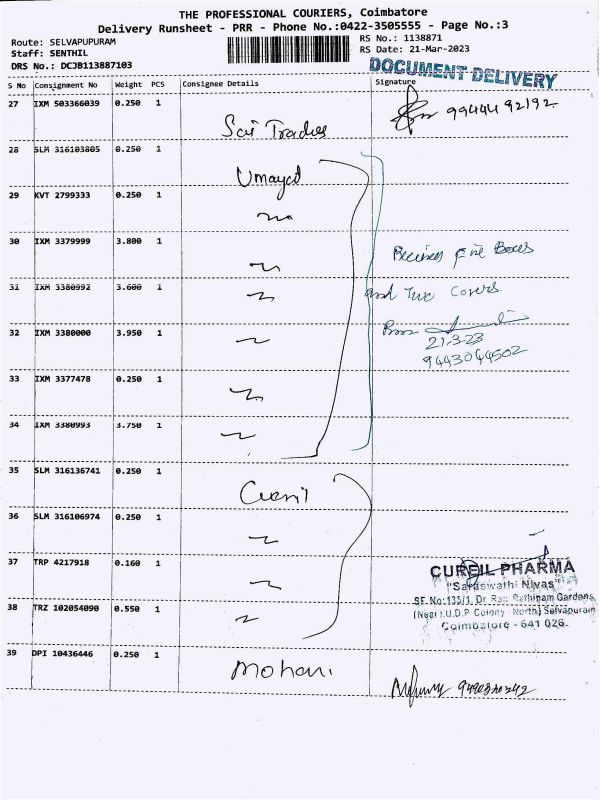 THE PROFESSIONAL COURIERS, Coimbatore
Delivery Runsheet - PRR - Phone No.:0422-3505555 - Page No.:3
Route: SELVAPUPURAM
Staff: SENTHIL
DRS No.: DCJB113887103
RS No.: 1138871
RS Date: 21-Mar-2023
DOCUMENT DELIVERY
S No Consignment No Weight PCS Consignee Details Signature
27 IXM 503366039 0.250 1
99444 92192
Sai Traders
28 SLM 316103805 0.250 1
Umayal
29 KVT 2799333 0.250 1
30 IXM 3379999 3.800 1
Received five Boxes
31 IXM 3380992 3.600 1
and Two Covers.
32 IXM 3380000 3.950 1
21-3-23
9443044502
33 IXM 3377478 0.250 1
34 IXM 3380993 3.750 1
35 SLM 316136741 0.250 1
36 SLM 316106974 0.250 1
37 TRP 4217918 0.160 1
CUREIL PHARMA
"Saraswathi Nivas"
SF.No:135/1, Dr. Raja Rathinam Gardens
38 TRZ 102054090 0.550 1
(Near I.U.D.P Colony - North) Selvapuram
Coimbatore - 641 026.
39 DPI 10436446 0.250 1
Mohani